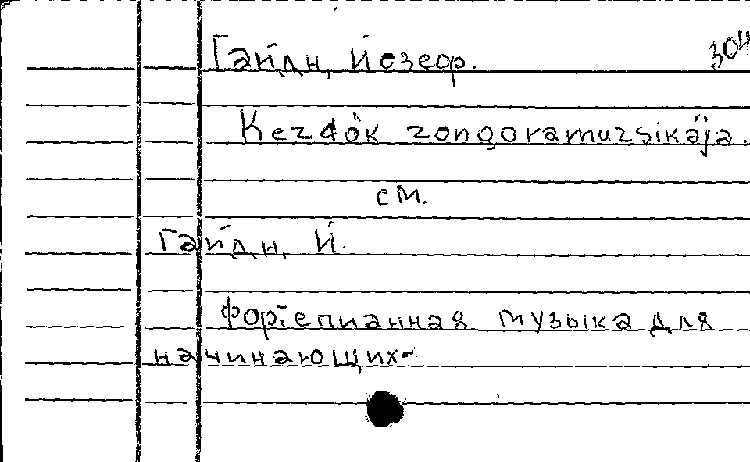 Гайдн, Йозеф.
304
Kezdök zongoramuzsikája.
см.
Гайдн, Й.
Фортепианная музыка для
начинающих-